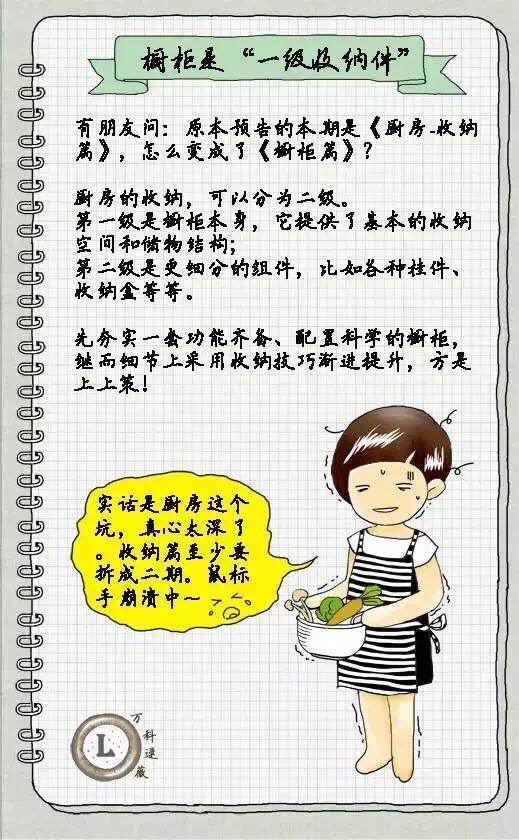 橱柜是“一级收纳件”
有朋友问：原本预告的本期是《厨房-收纳
篇》，怎么变成了《橱柜篇》？
厨房的收纳，可以分为二级。
第一级是橱柜本身，它提供了基本的收纳
空间和储物结构；
第二级是更细分的组件，比如各种挂件、
收纳盒等等。
先夯实一套功能齐备、配置科学的橱柜，
继而细节上采用收纳技巧渐进提升，方是
上上策！
实话是厨房这个
坑，真心太深了
。收纳篇至少要
拆成二期。鼠标
手崩溃中～
万科逯薇
L